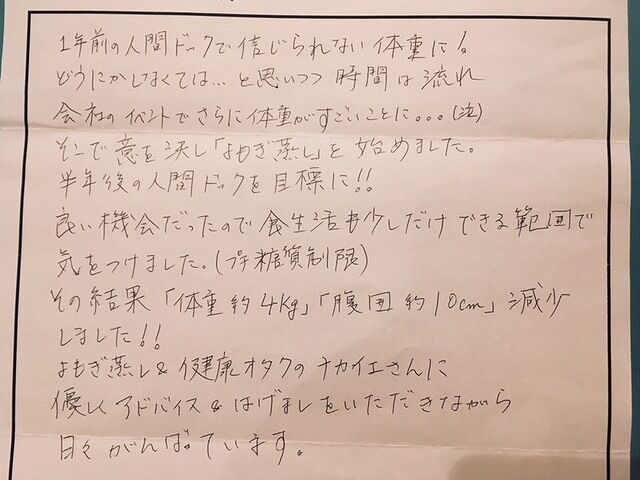 1年前の人間ドックで信じられない体重に!
どうにかしなくては…と思いつつ時間は流れ
会社のイベントでさらに体重がすごいことに。。。(泣)
そこで意を決し「よもぎ蒸し」を始めました。
半年後の人間ドックを目標に!!
良い機会だったので食生活も少しだけできる範囲で
気をつけました。(プチ糖質制限)
その結果「体重約4Kg」「腹囲約10cm」減少
しました!!
よもぎ蒸し&健康オタクのナカイエさんに
優しくアドバイス&はげましをいただきながら
日々がんばっています。